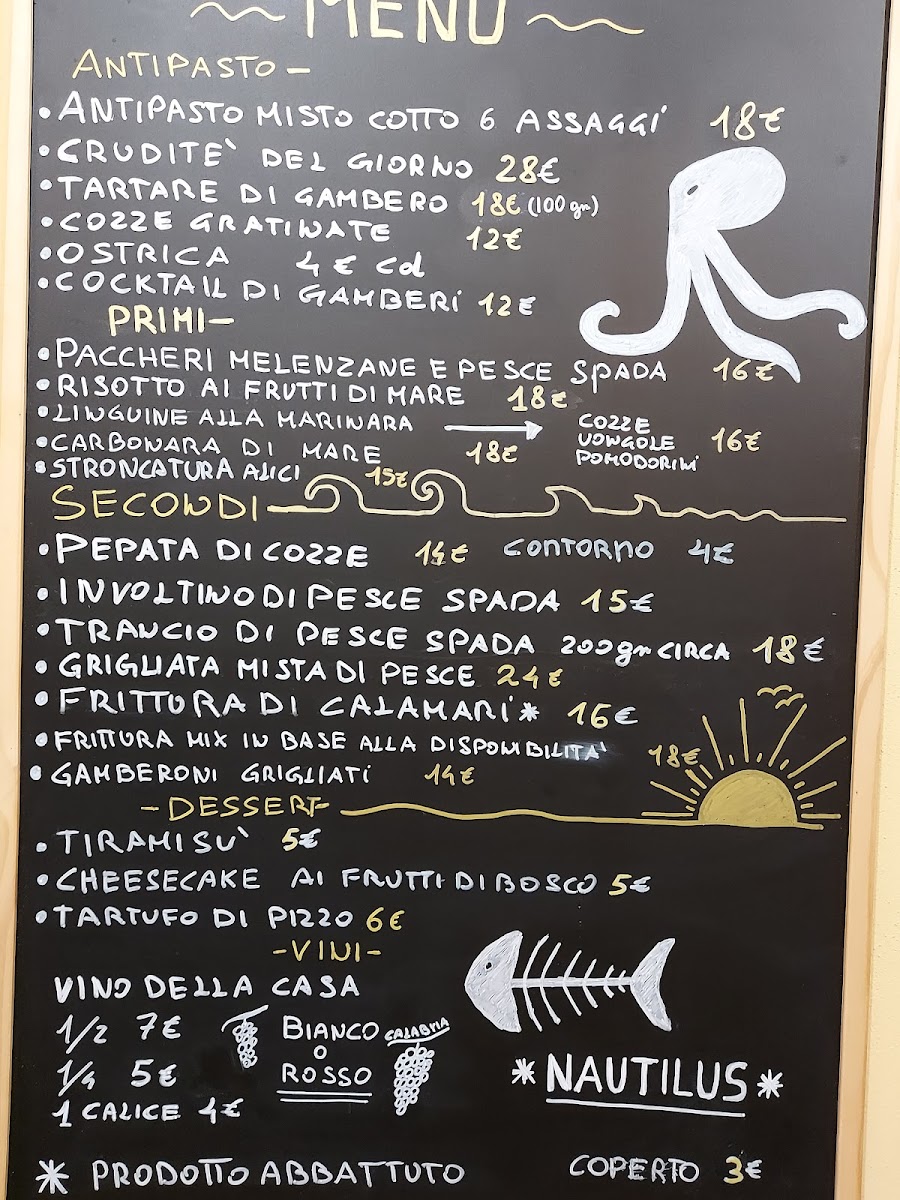 ~ MENU ~
ANTIPASTO -
• ANTIPASTO MISTO COTTO 6 ASSAGGI 18€
• CRUDITE' DEL GIORNO 28€
• TARTARE DI GAMBERO 18€ (100 gr)
• COZZE GRATINATE 12€
• OSTRICA 4€ cd
• COCKTAIL DI GAMBERI 12€
PRIMI -
• PACCHERI MELENZANE E PESCE SPADA 16€
• RISOTTO AI FRUTTI DI MARE 18€
• LINGUINE ALLA MARINARA → COZZE VONGOLE POMODORINI 16€
• CARBONARA DI MARE 18€
• STRONCATURA ALICI 15€
SECONDI -
• PEPATA DI COZZE 14€ CONTORNO 4€
• INVOLTINO DI PESCE SPADA 15€
• TRANCIO DI PESCE SPADA 200gr CIRCA 18€
• GRIGLIATA MISTA DI PESCE 24€
• FRITTURA DI CALAMARI * 16€
• FRITTURA MIX IN BASE ALLA DISPONIBILITA' 18€
• GAMBERONI GRIGLIATI 14€
- DESSERT -
• TIRAMISU' 5€
• CHEESECAKE AI FRUTTI DI BOSCO 5€
• TARTUFO DI PIZZO 6€
- VINI -
VINO DELLA CASA
1/2 7€
1/4 5€
1 CALICE 4€
BIANCO
O
ROSSO
CALABRIA
* NAUTILUS *
* PRODOTTO ABBATTUTO
COPERTO 3€